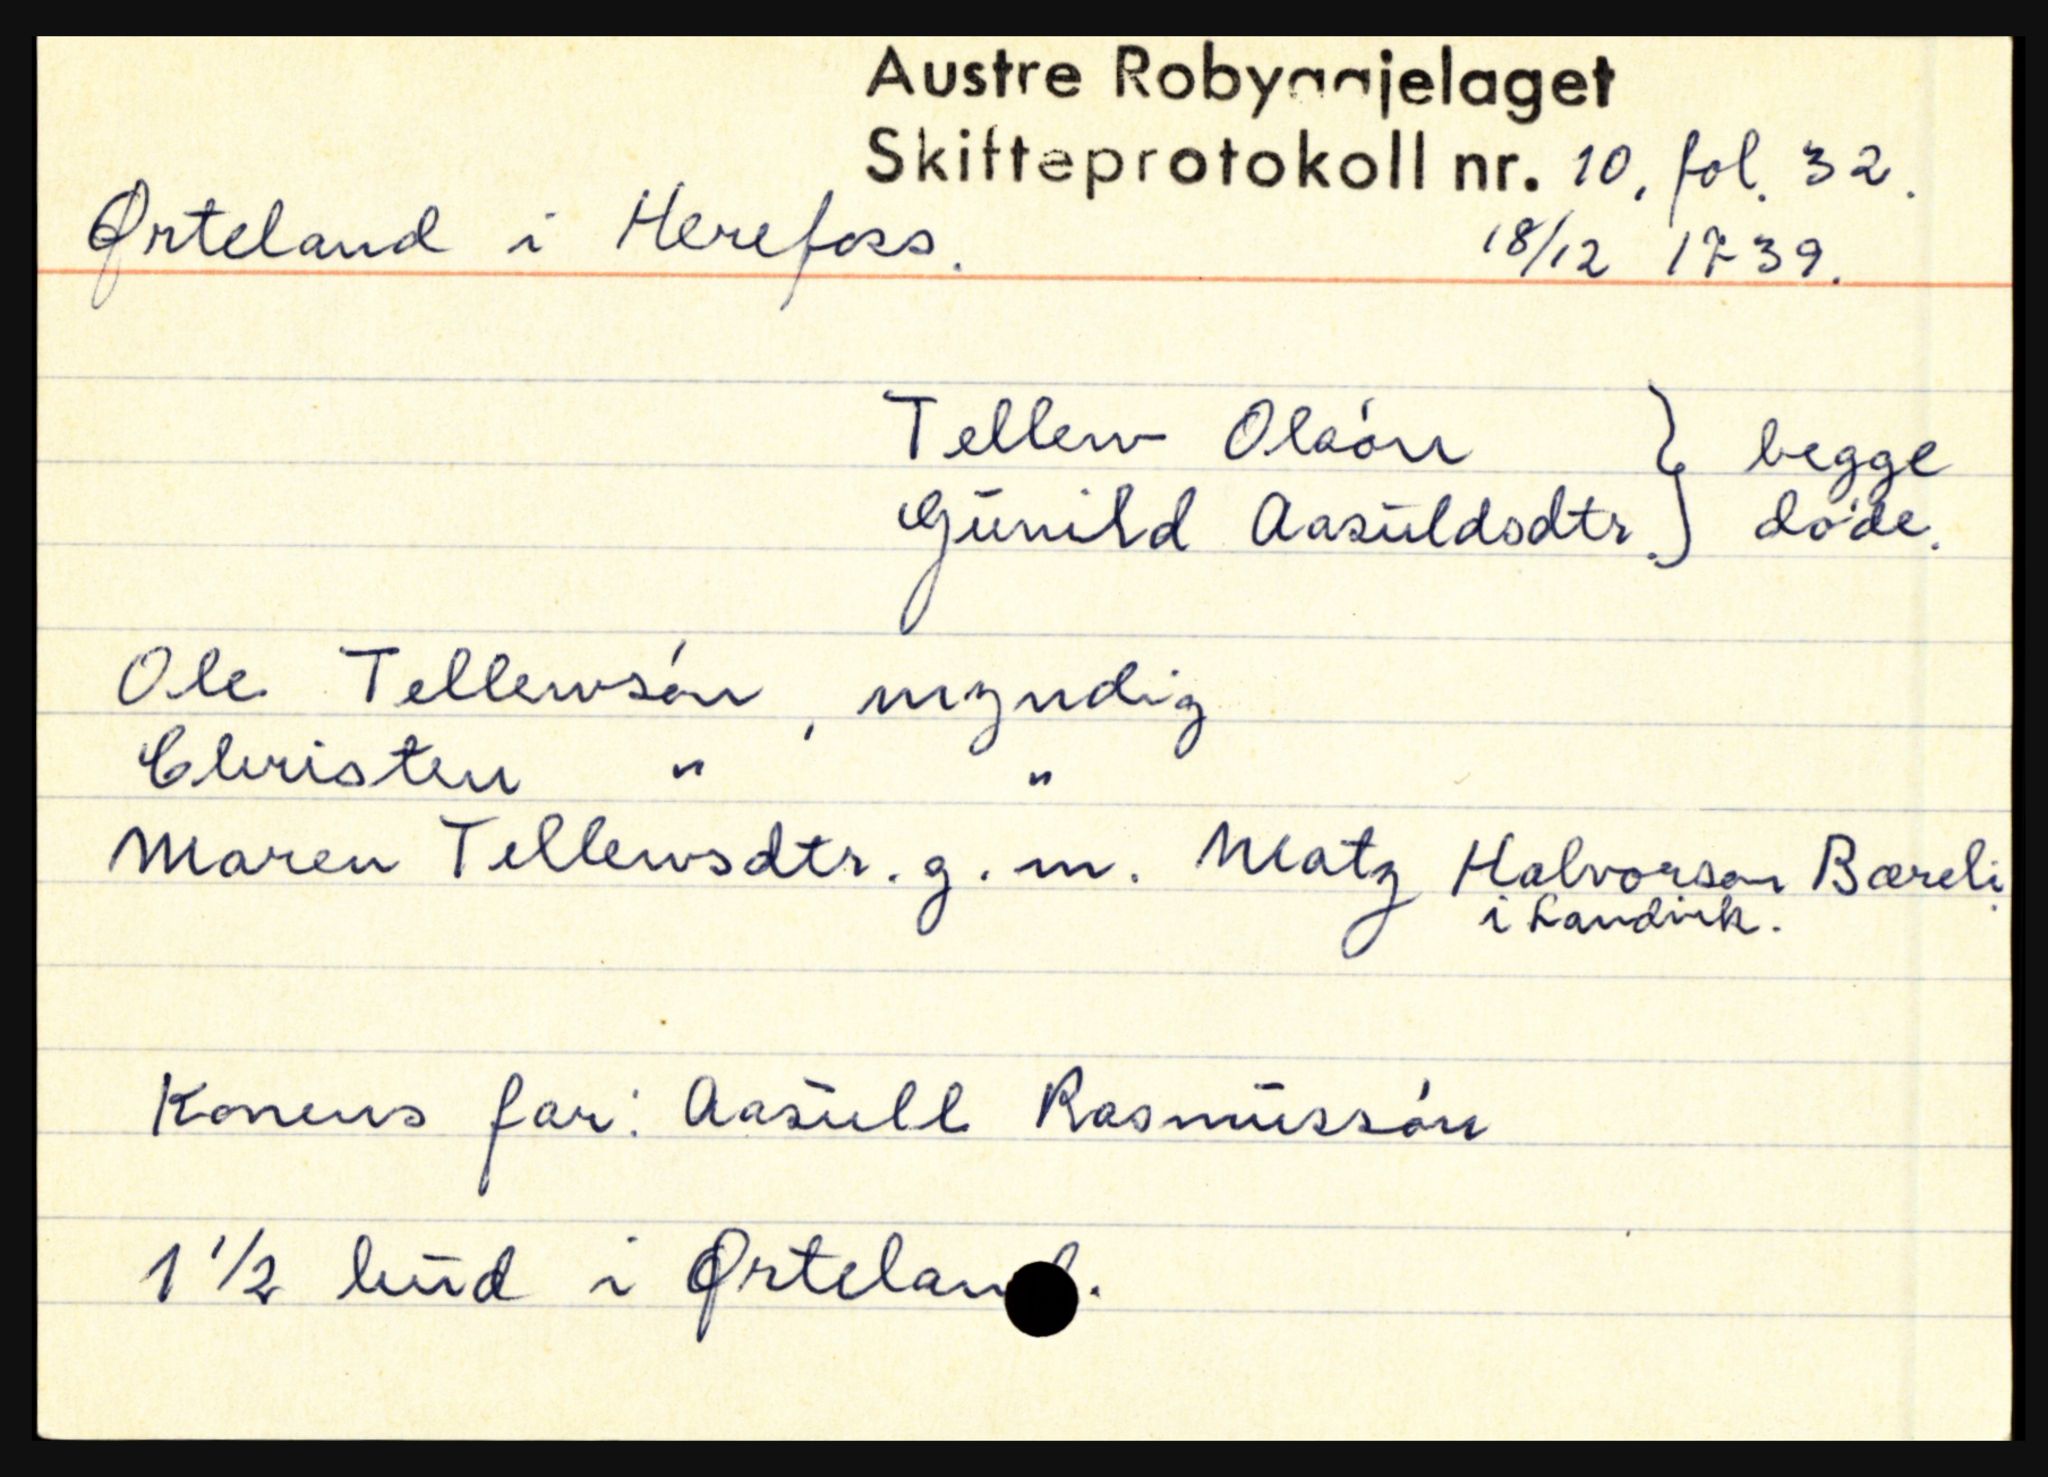 Austre Robyggjelaget
Skifteprotokoll nr. 10, fol. 32.
Ørteland i Herefoss.
18/12 1739.
Tellew Olsón } begge
Gūnild Aasūldsdtr. } døde.
Ole Tellewsón, myndig
Christen " "
Maren Tellewsdtr. g. m. Matz Halvorsen Bæreli
i Landvik.
Konens far: Aasūll Rasmūssón
1 1/2 hūd i Ørteland.